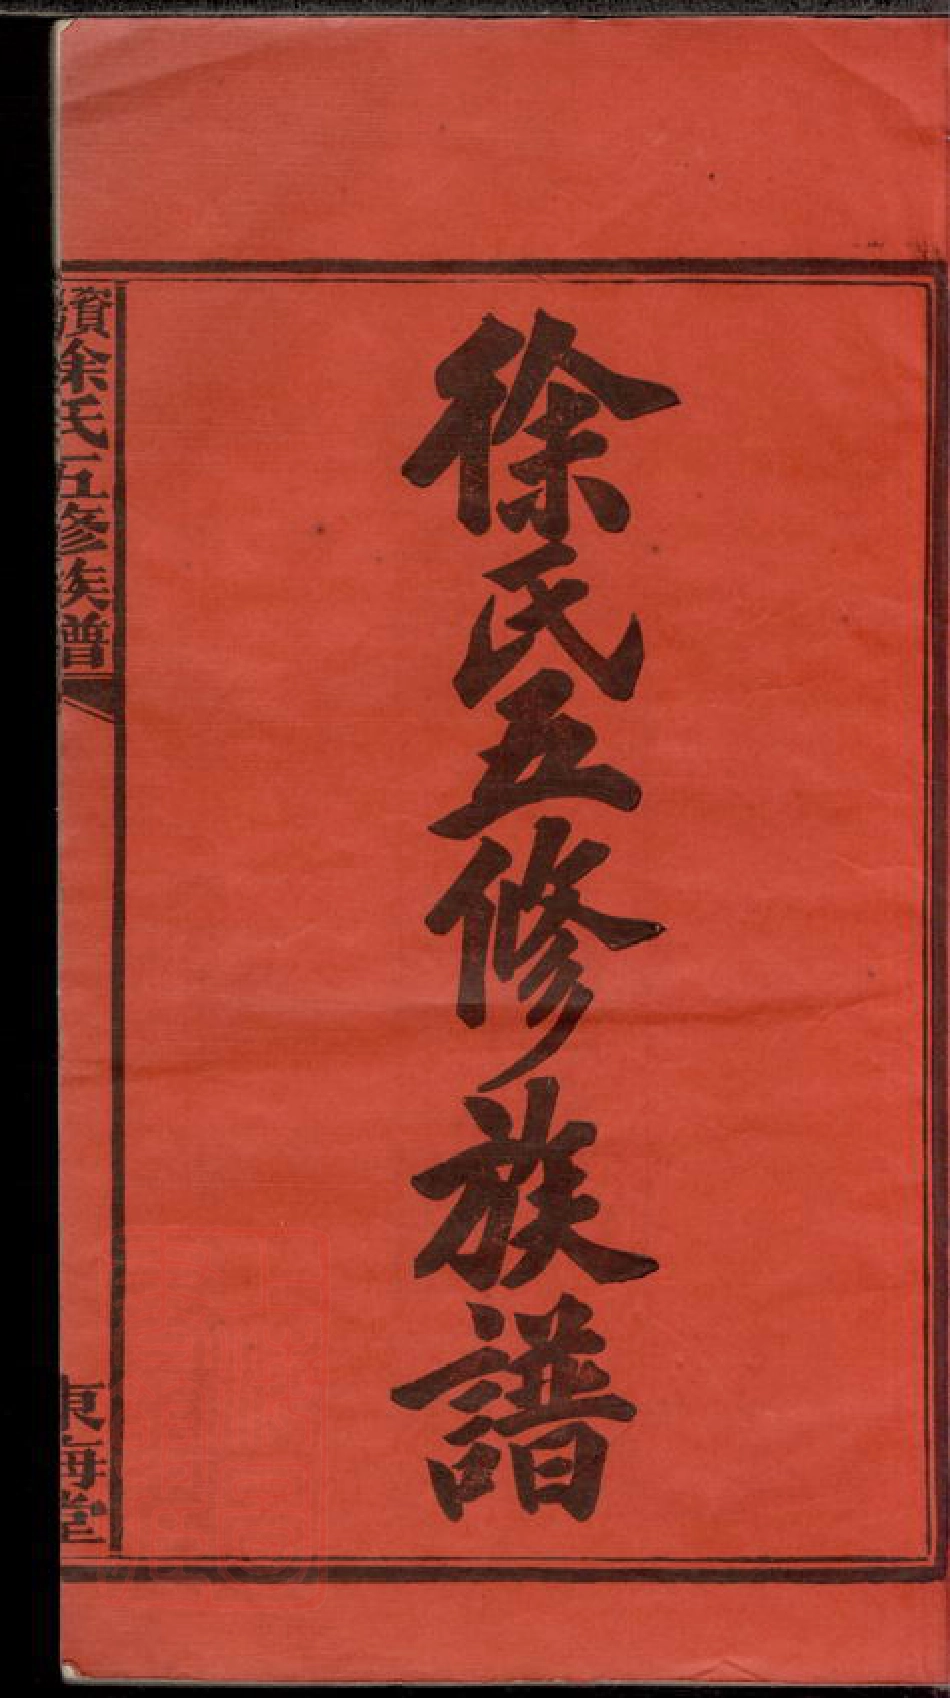 徐氏五修族譜
徐氏五修族譜
東海堂